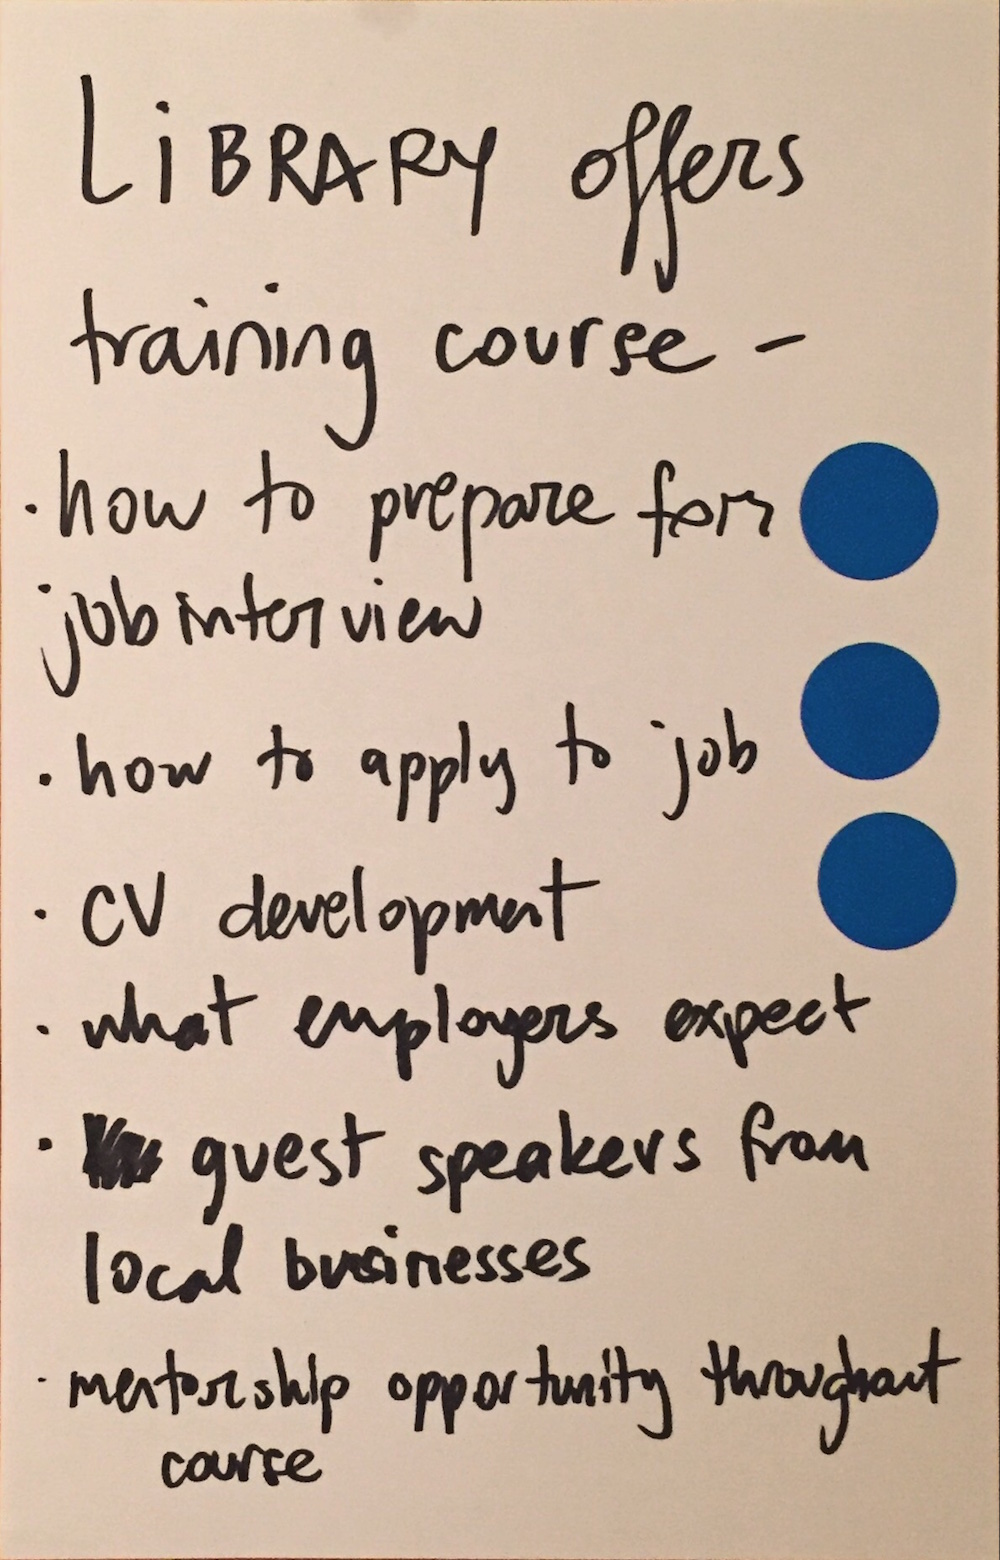 LiBRARY offers
training course -
· how to prepare for
job interview
· how to apply to job
· CV development
· what employers expect
· guest speakers from
local businesses
· mentorship opportunity throughout
course